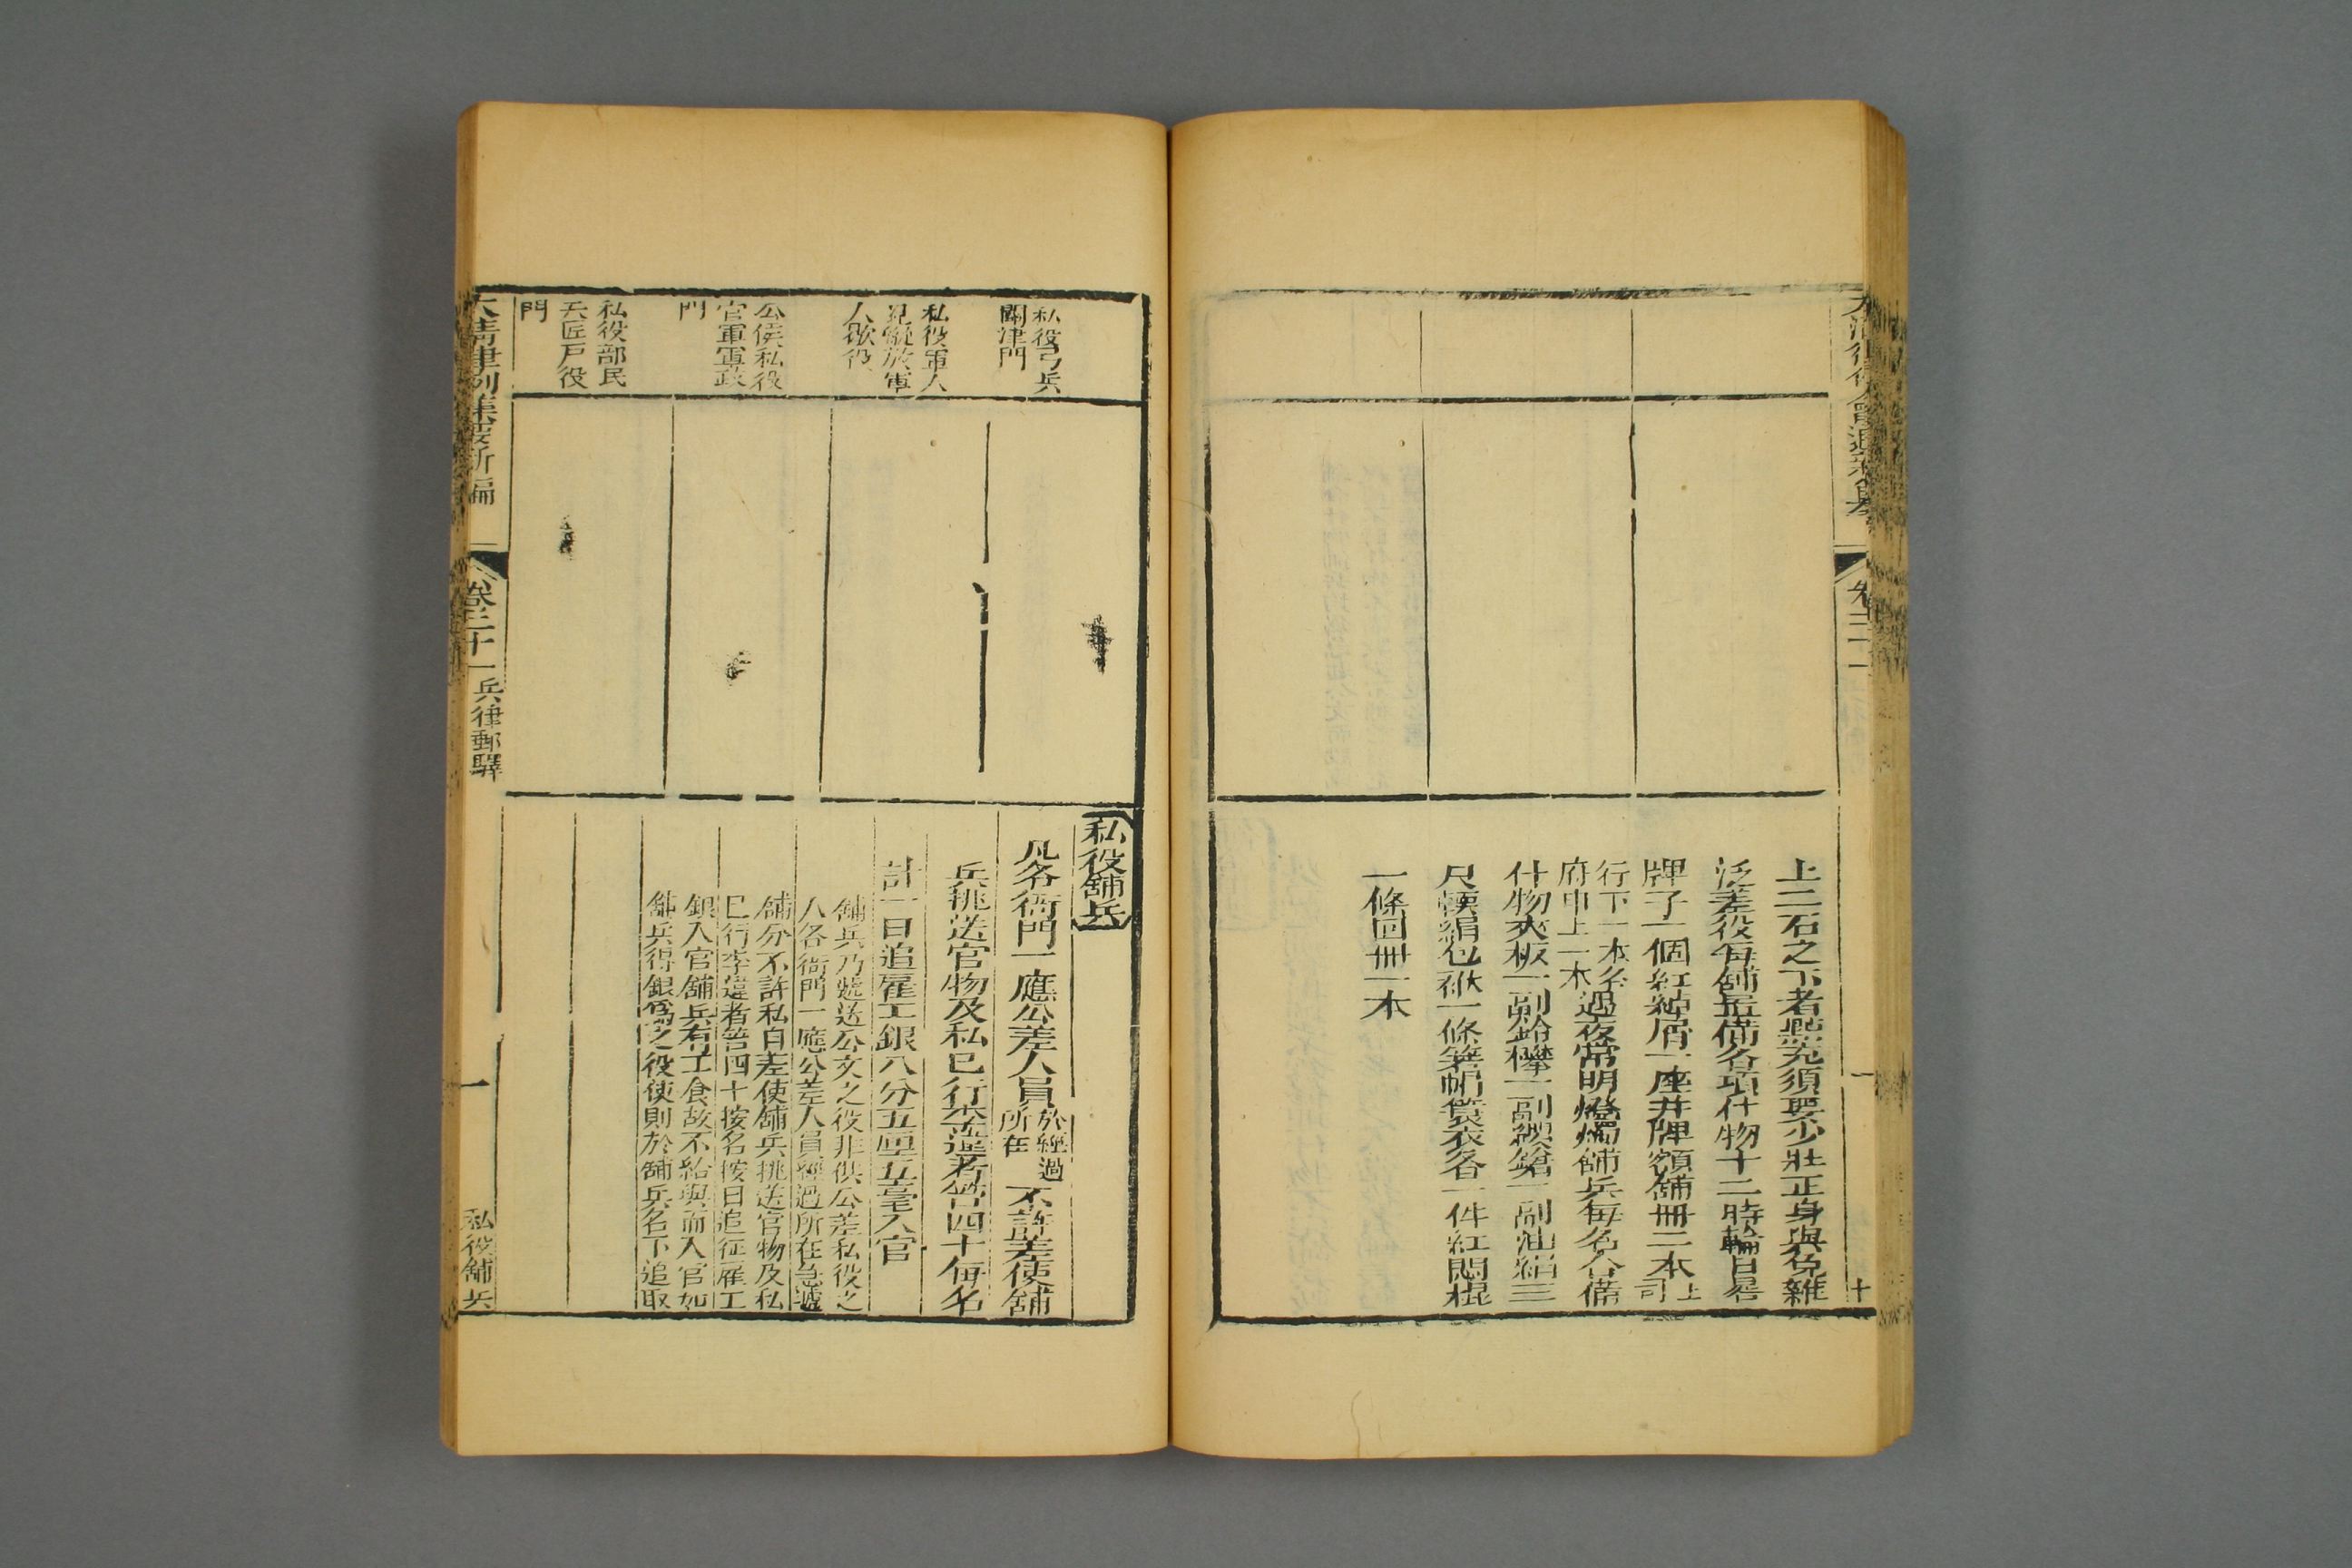 上二石之下者點充須要少壯正身與免雜
泛差役每舖要備各項什物十二時輪日晷
牌子一個紅綽屑一座并牌額舖冊二本上司
行下一本各
府申上一本
過夜常明燈燭舖兵每名合備
什物夾板一副鈴攀一副纓鎗一副油絹三
尺輭絹包袱一條箬帽簑衣各一件紅悶棍
一條回冊一本
卷三十一
十
私役弓兵
關津門
私役軍人
見縱放軍
人歇役
公侯私役
官軍軍政
門
私役部民
夫匠戶役
門
私役舖兵
凡各衙門一應公差人員
於經過
所在
不許差使舖
兵挑送官物及私己行李違者笞四十每名
計一日追雇工銀八分五厘五毫入官
舖兵乃遞送公文之役非供公差私役之
人各衙門一應公差人員經過所在急遞
舖分不許私自差使舖兵挑送官物及私
己行李違者笞四十按名按日追征雇工
銀入官舖兵有工食故不給與而入官如
舖兵得銀爲之役使則於舖兵名下追取
大清律例集要新編
卷三十一
兵律郵驛
一
私役舖兵